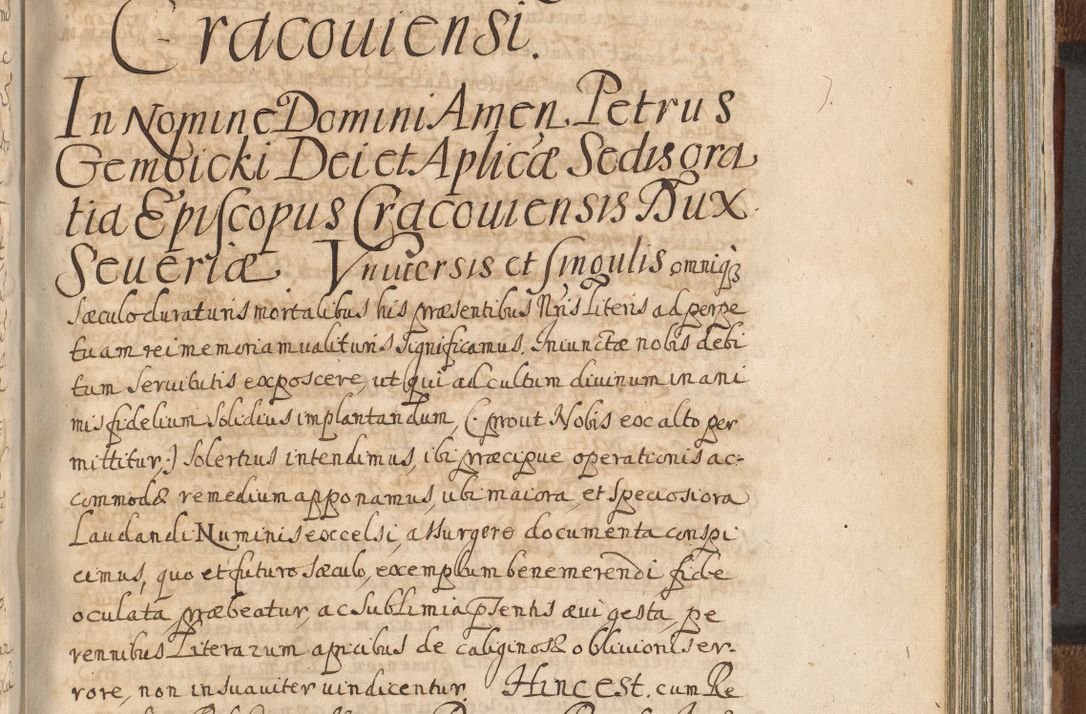 Cracouiensi.
In Nomine Domini Amen. Petrus
Gembicki Dei et Aplicæ Sedis gra
tia Episcopus Cracouiensis Dux
Seueriæ. Vniuersis et singulis omniq3
sæculo duraturis mortalibus his præsentibus Nris Literis ad perpe
tuam rei memoriam ualituris significamus. Iniunctæ nobis debi
tum seruitutis exposcere, ut qui ad cultum diuinum in ani
mis fidelium solidius implantandum, (: prout Nobis ex alto per
mittitur:) solertius intendimus, ibi præcipue operationis ac-
commodæ remedium apponamus, ubi maiora, et speciosiora
Laudandi Numinis excelsi, assurgere documenta conspi
cimus, quo et futuro sæculo, exemplum benemerendi fide
oculata, præbeatur, ac sublimia pntis æui gesta, pe
rennibus Literarum apicibus de caliginosæ obliuionis er-
rore, non insuauiter uindicentur. Hinc est. cum Re